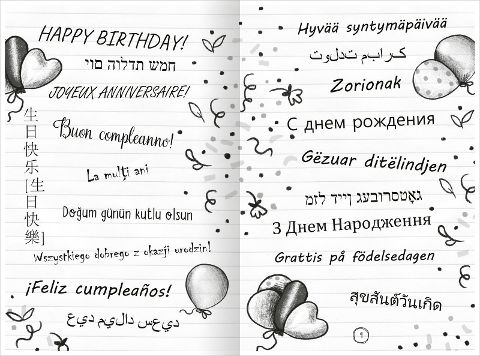 HAPPY BIRTHDAY!
חמש תדלוה םוי
JOYEUX ANNIVERSAIRE!
生日快乐 [生日快樂]
Buon compleanno!
La mulţi ani
Doğum günün kutlu olsun
Wszystkiego dobrego z okazji urodzin!
¡Feliz cumpleaños!
ديعس دالیم ديع
Hyvää syntymäpäivää
کرابم تدلوت
Zorionak
С днем рождения
Gëzuar ditëlindjen
З Днем Народження
Grattis på födelsedagen
สุขสันต์วันเกิด